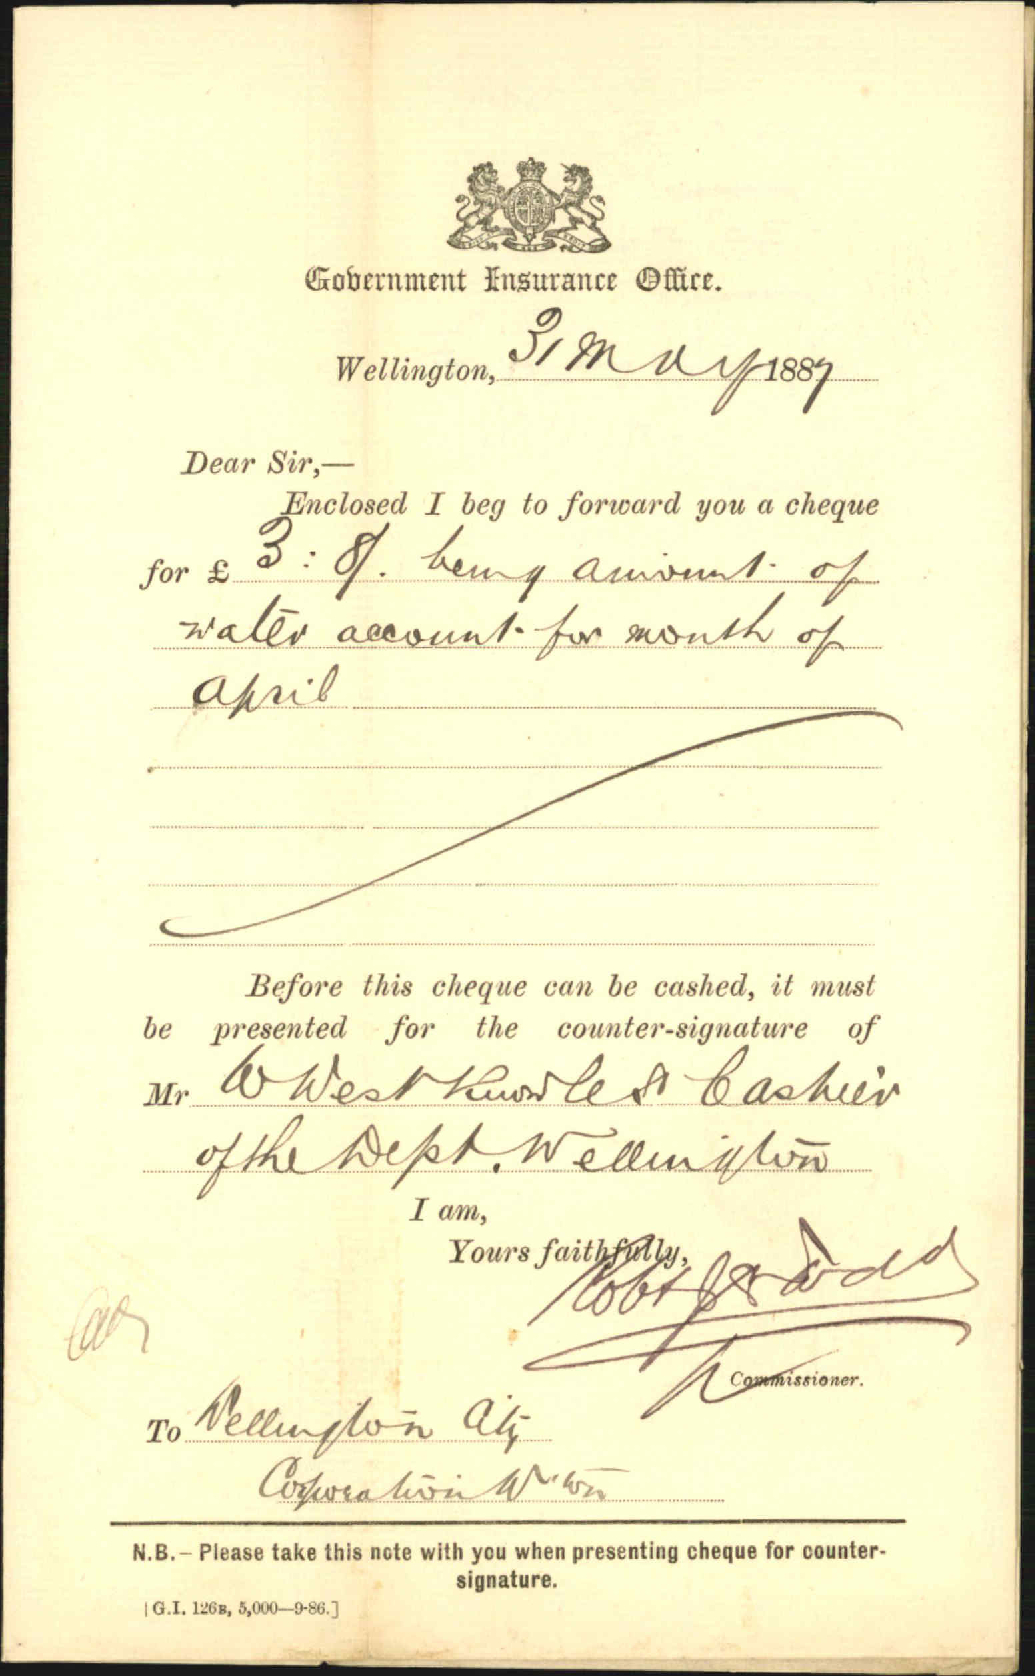 Government Insurance Office.
Wellington, 31 May 1887
Dear Sir,—
Enclosed I beg to forward you a cheque
for £ 3 : 8/. being amount of
water account for month of
April
Before this cheque can be cashed, it must
be presented for the counter-signature of
Mr W West Knowles Cashier
of the Dept. Wellington
I am,
Yours faithfully,
Robt Todd
Commissioner.
To Wellington City
Corporation W'ton
N.B.— Please take this note with you when presenting cheque for counter-
signature.
[G.I. 126B, 5,000—9-86.]